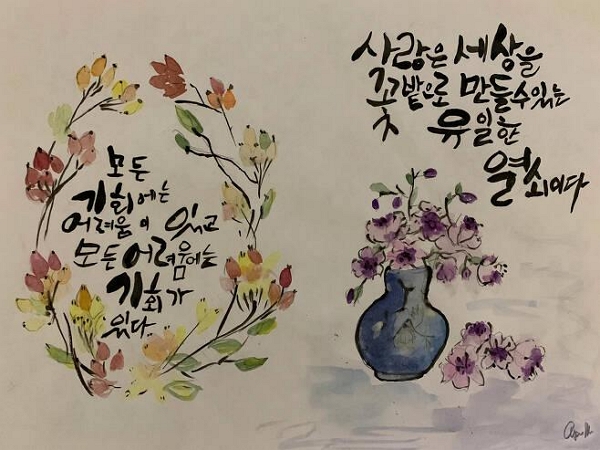 모든
기회에는
어려움이 있고
모든 어려움에는
기회가
있다.
사랑은 세상을
꽃밭으로 만들수있는
유일한
열쇠이다